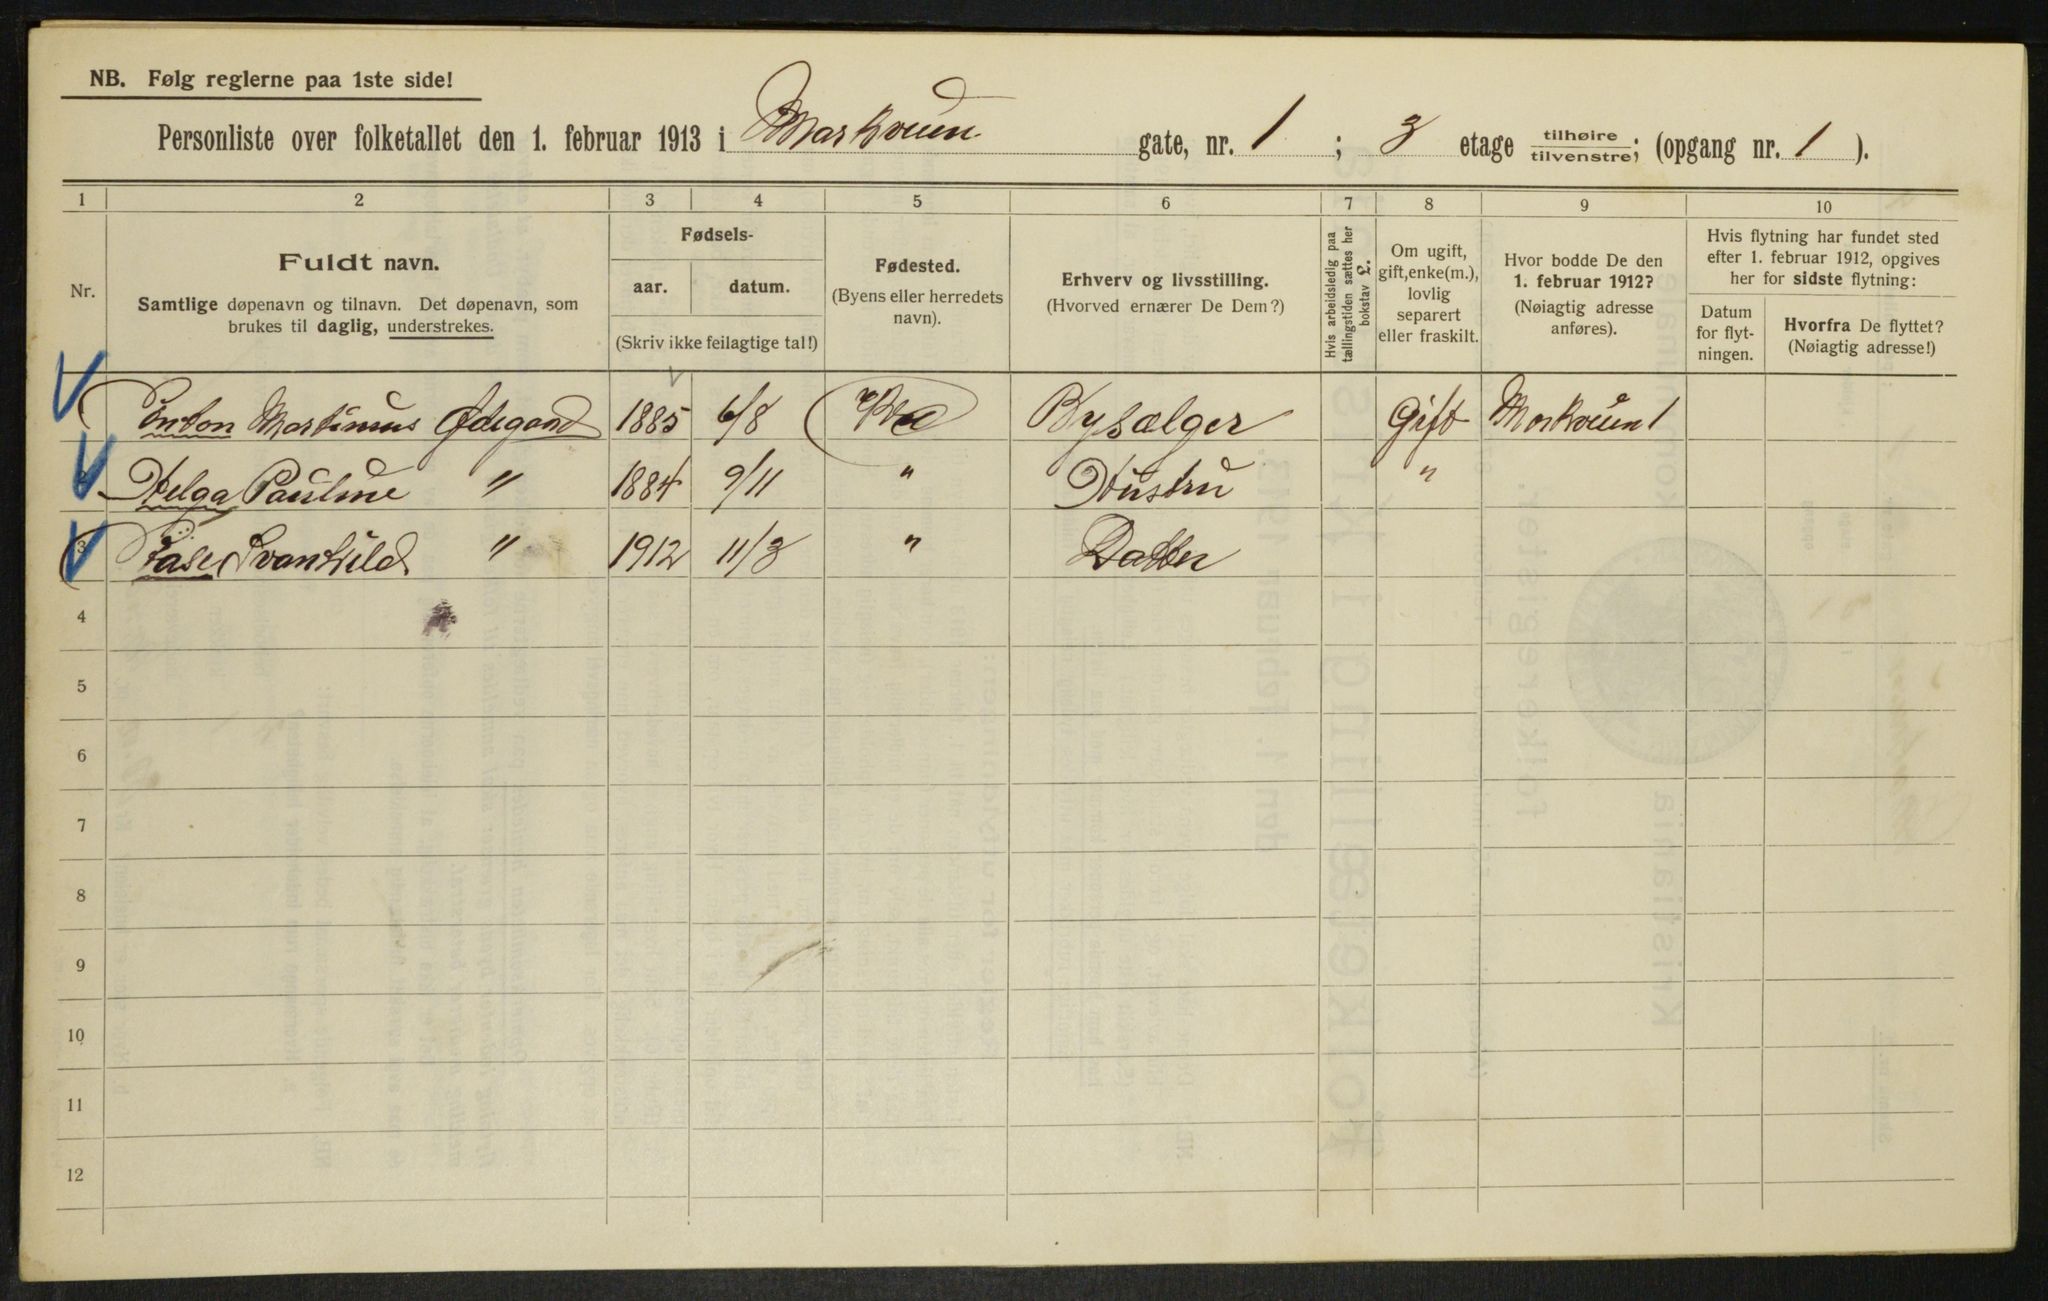 NB. Følg reglerne paa 1ste side!
Personliste over folketallet den 1. februar 1913 i Markveien gate, nr. 1 ; 3 etage tilhøire / tilvenstre; (opgang nr. 1 ).
1 2 3 4 5 6 7 8 9 10
Nr.
Fuldt navn.
Samtlige døpenavn og tilnavn. Det døpenavn, som
brukes til daglig, understrekes.
Fødsels-
aar. datum.
(Skriv ikke feilagtige tal!)
Fødested.
(Byens eller herredets
navn).
Erhverv og livsstilling.
(Hvorved ernærer De Dem?)
Hvis arbeidsledig paa
tællingstiden sættes her
bokstav L.
Om ugift,
gift, enke(m.),
lovlig
separert
eller fraskilt.
Hvor bodde De den
1. februar 1912?
(Nøiagtig adresse
anføres).
Hvis flytning har fundet sted
efter 1. februar 1912, opgives
her for sidste flytning:
Datum
for flyt-
ningen.
Hvorfra De flyttet?
(Nøiagtig adresse!)
Anton Martinius Ødegaard 1885 6/8 Kra Bysælger Gift Markveien 1
Helga Pauline " 1884 9/11 " Hustru "
3 Aase Svanhild " 1912 11/3 " Datter
4
5
6
7
8
9
10
11
12